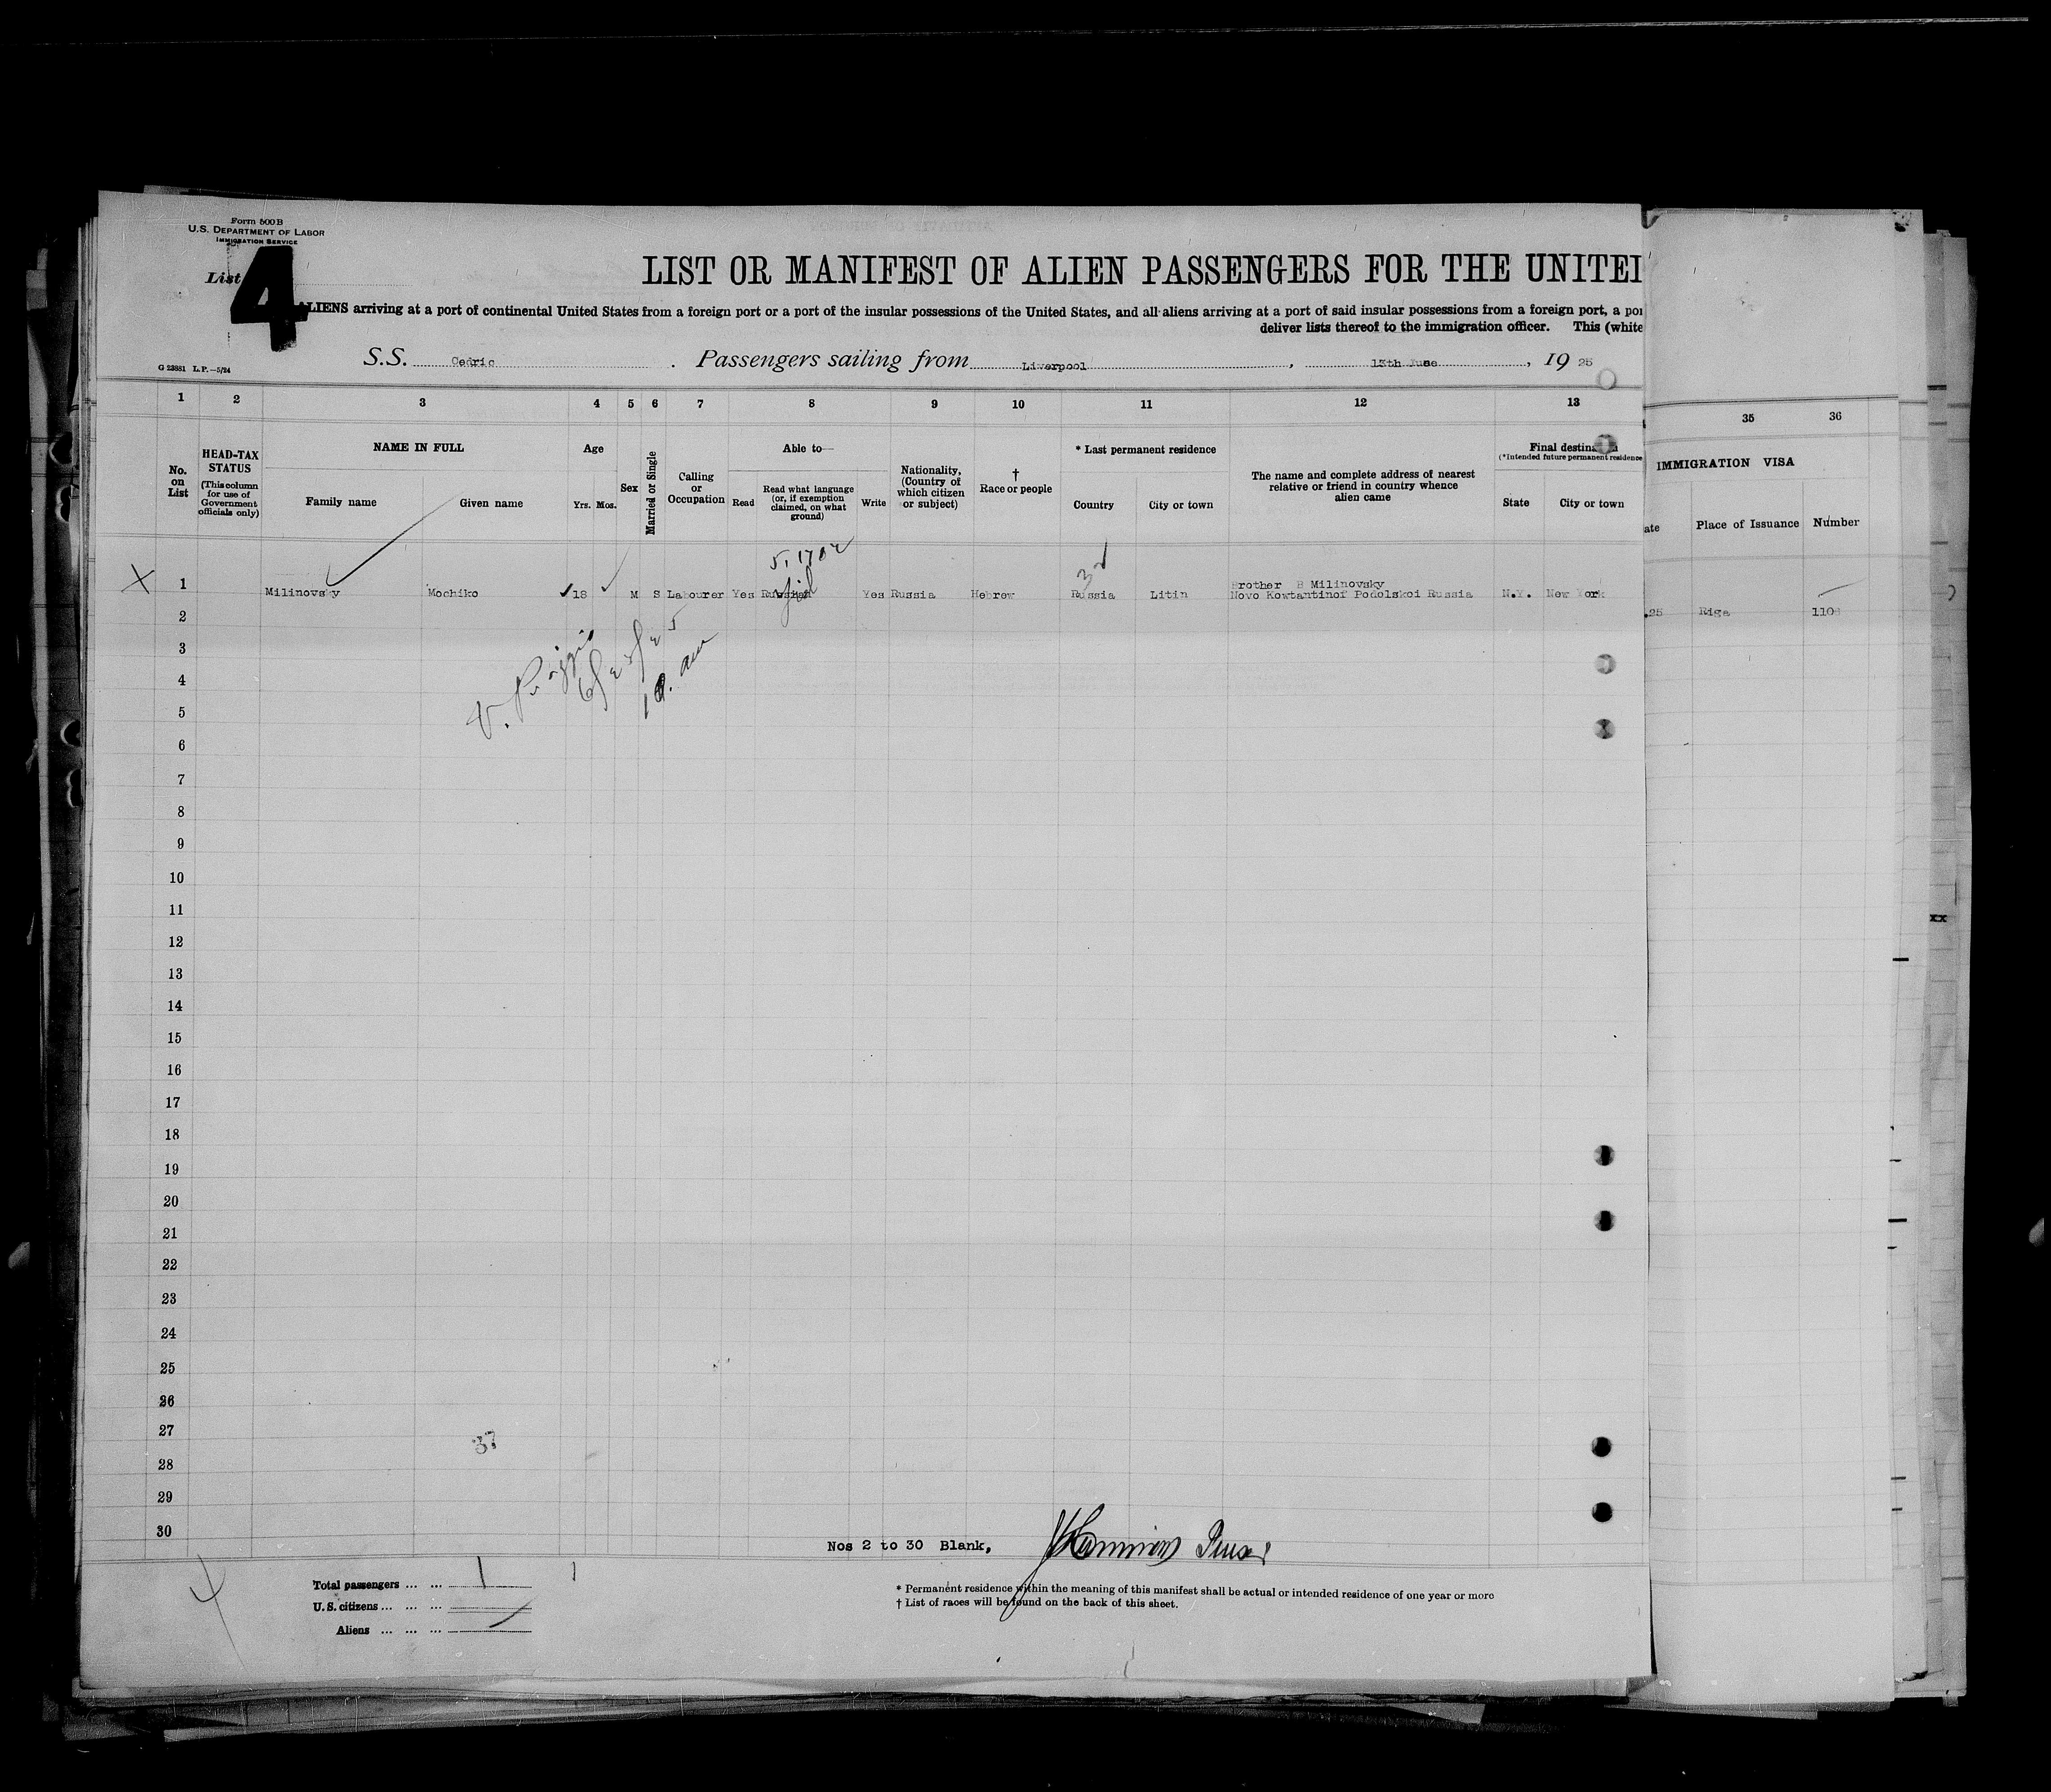 Form 500 B
U.S. DEPARTMENT OF LABOR
IMMIGRATION SERVICE
List 4
LIST OR MANIFEST OF ALIEN PASSENGERS FOR THE UNITED
ALIENS arriving at a port of continental United States from a foreign port or a port of the insular possessions of the United States, and all aliens arriving at a port of said insular possessions from a foreign port, a por
deliver lists thereof to the immigration officer. This (white
S.S. Cedric. Passengers sailing from Liverpool, 13th June, 19 25
G 23881 L.P.—5/24
1 2 3 4 5 6 7 8 9 10 11 12 13 35 36
No. on List
HEAD-TAX STATUS (This column for use of Government officials only)
NAME IN FULL
Family name
Given name
Age
Yrs. Mos.
Sex
Married or Single
Calling or Occupation
Able to—
Read
Read what language (or, if exemption claimed, on what ground)
Write
Nationality, (Country of which citizen or subject)
† Race or people
* Last permanent residence
Country
City or town
The name and complete address of nearest relative or friend in country whence alien came
Final destination
(*Intended future permanent residence
State
City or town
IMMIGRATION VISA
ate
Place of Issuance
Number
3d
X 1 Milinovsky 18 M S Labourer Yes Russian Yes Russia Hebrew Russia Litin Brother B Milinovsky
Novo Kowtantinof Podolskoi Russia N.Y. New York
25 Riga
2
3
4
5
6
7
8
9
10
11
12
13
14
15
16
17
18
19
20
21
22
23
24
25
26
27
37
28
29
30
Nos 2 to 30 Blank,
4
Total passengers ... ... 1 1
U.S. citizens ... ... ...
Aliens ... ... ...
* Permanent residence within the meaning of this manifest shall be actual or intended residence of one year or more
† List of races will be found on the back of this sheet.
xx